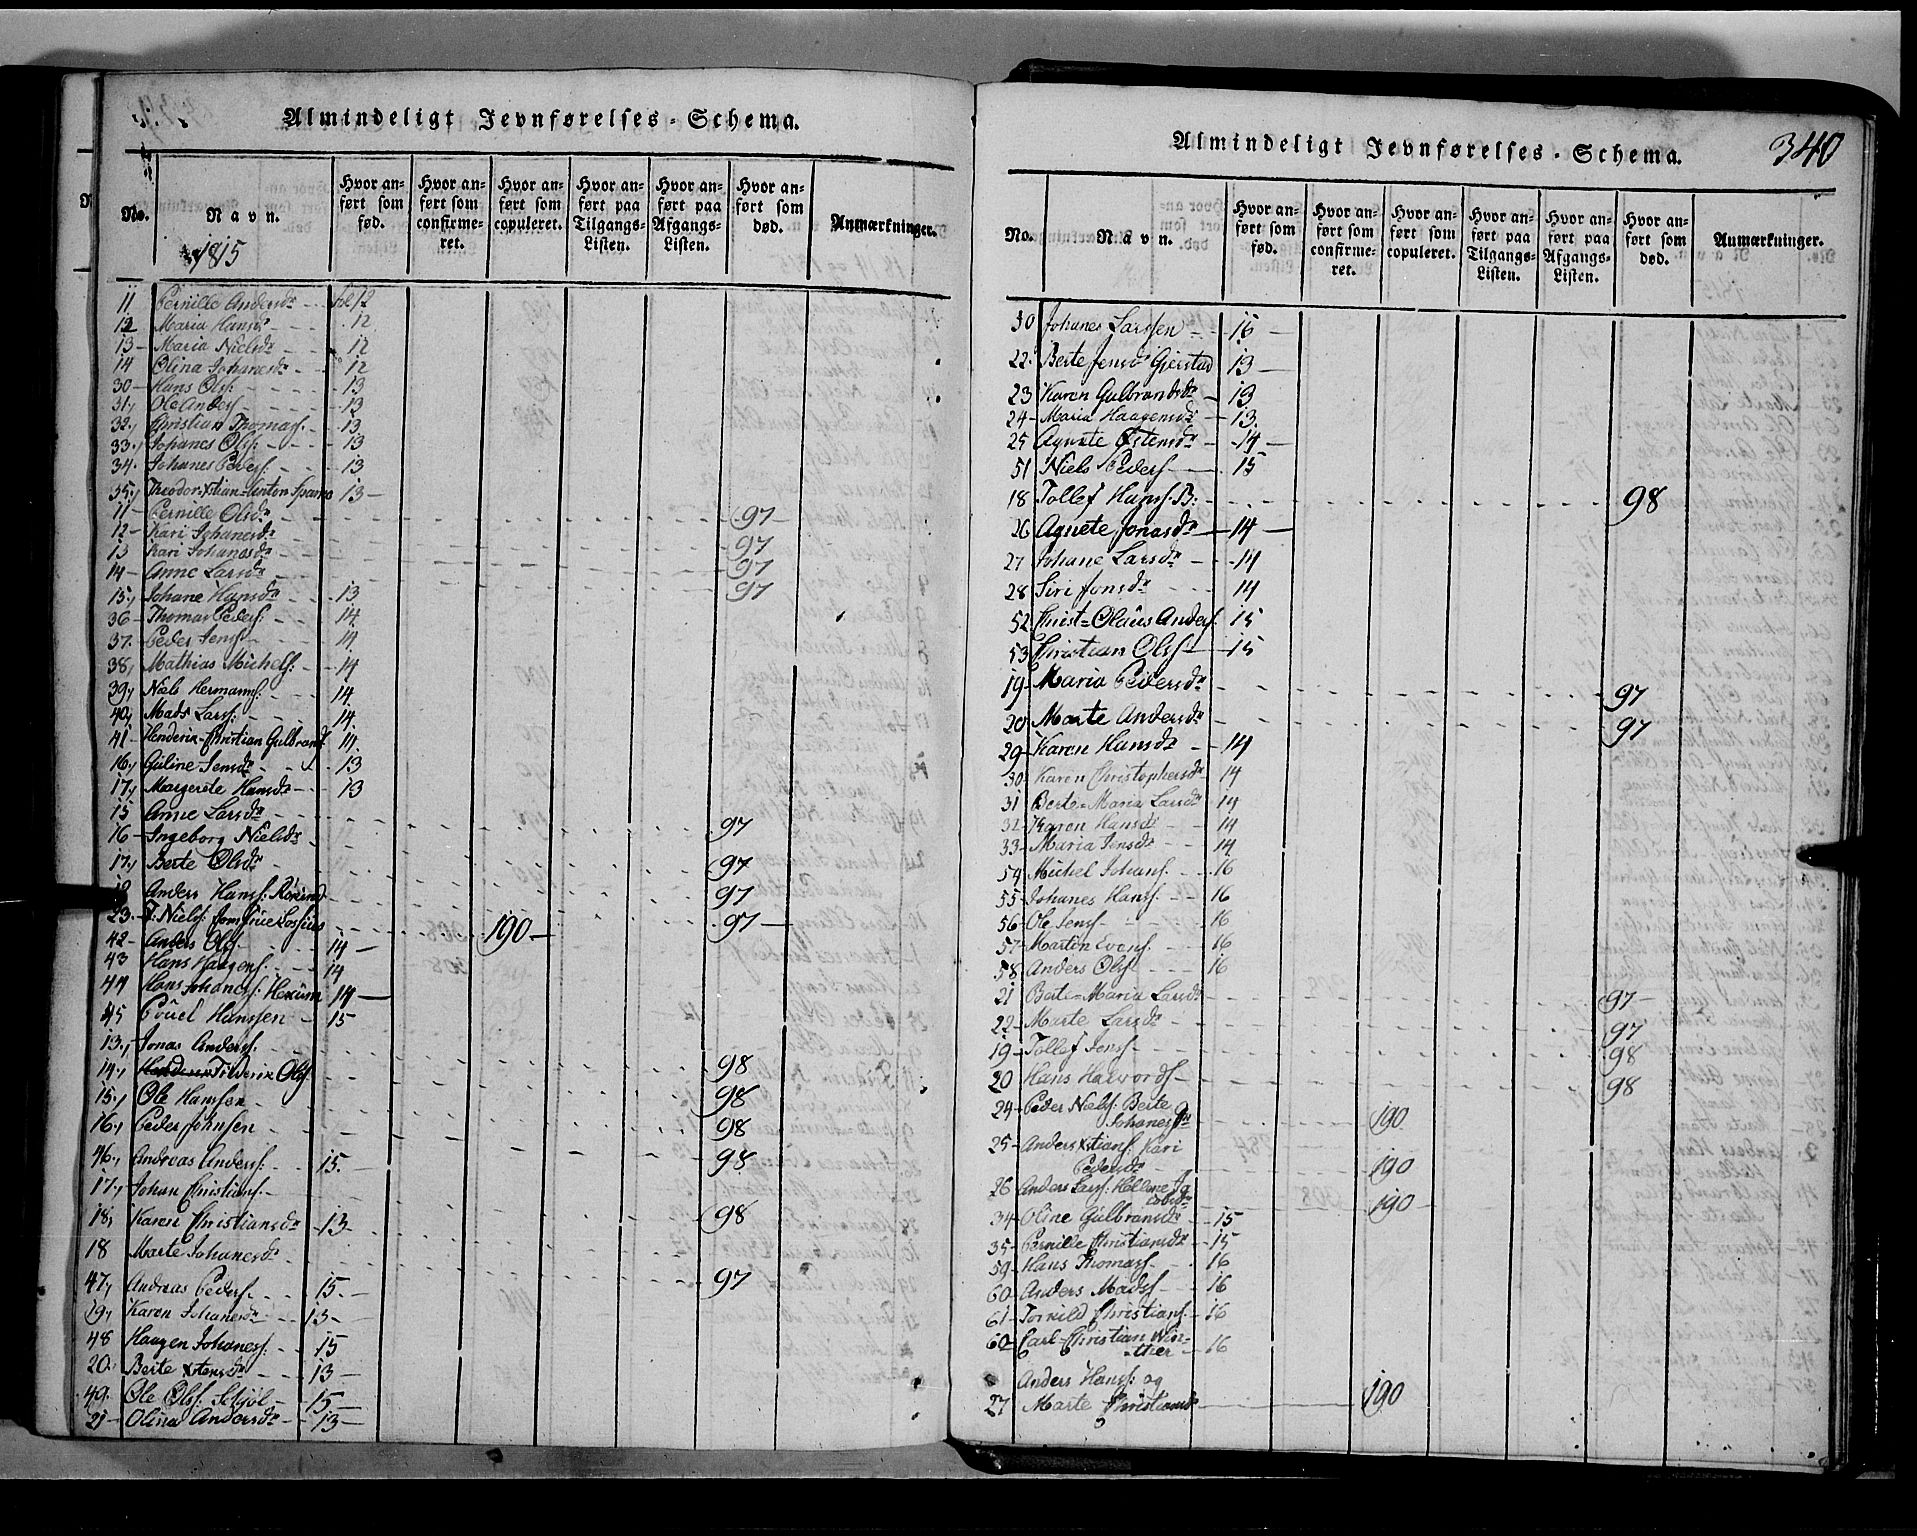 Almindeligt Jevnførelses-Schema.
No.
Navn.
Hvor anført som fød.
Hvor anført som confirmeret.
Hvor anført som copuleret.
Hvor anført paa Tilgangs-Listen.
Hvor anført paa Afgangs-Listen.
Hvor anført som død.
Anmærkninger.
1815
11 Pernille Andersdr fol 12
12 Maria Hansdr 12
13 Maria Nielsdr 12
14 Olina Johanesdr 12
30 Hans Olss: 13
31, Ole Anders 13
32, Christian Thomas: 13
33, Johanes Olss: 13
34. Johanes Peders: 13
35, Theodor Xstian Anton 13
11 Pernille Olsdr 97
12 Kari Johanesdr 97
13 Kari Johanesdr 97
14 Anne Larsdr 97
15, Johane Hansdr 13
36 Thomas Peders: 14
37. Peder Jens 14
38, Mathias Michels: 14
39, Niels Hermanns: 14
40, Mads Larss: 14
41 Henderik Christian Gulbrands 14
16, Guline Jensdr 13
17, Margrete Hansdr 13
15 Anne Larsdr 97
16 Ingeborg Nielsdr 97
17, Berte Olsdr 97
Anders Hanss: 97
23. Niels: Jomfrue Lossius 190
42 Anders Olss 14
43 Hans Haagens: 14
44 Hans Johaness: Hexum 14
45 Pouel Hanssen 15
13, Jonas Anderss: 98
14, Friderik Olss 98
15, Ole Hanssen 98
16, Peder Johnsen 98
46, Andreas Anderss: 15
17, Johan Christians: 98
18, Karen Christiansdr 13
18 Marte Johanesdr 97
47, Andreas Peders: 15
19, Karen Johanesdr 13
48 Haagen Johaness: 15
20. Berte Xstensdr 13
49. Ole Olss: 15
21 Olina Andersdr 13
Almindeligt Jevnførelses-Schema.
340
No.
Navn.
Hvor anført som fød.
Hvor anført som confirmeret.
Hvor anført som copuleret.
Hvor anført paa Tilgangs-Listen.
Hvor anført paa Afgangs-Listen.
Hvor anført som død.
Anmærkninger.
50 Johanes Larssen 15
22 Berte Jensdr Gjerstad 13
23 Karen Gulbrandsdr 13
24 Maria Haagensdr 13
25 Agnete Østensdr 14
51 Niels Peders 15
18 Tollef Hanss. 98
26 Agnete Jonasdr 14
27 Johane Larsdr 14
28 Siri Jonsdr 14
52 Christ=Olaus Anders 15
53 Christian Olss 15
19 Maria Pedersdr 97
20 Marte Andersdr 97
29 Karen Hansdr 14
30 Karen Christophersdr 14
31 Berte=Maria Larsdr 14
32 Karen Hansdr 14
33 Maria Jensdr 14
54 Michel Johans: 16
55 Johanes Hanss: 16
56 Ole Jenss 16
57 Marten Evens: 16
58 Anders Olss 16
21 Berte=Maria Larsdr 97
22 Marte Larsdr 97
19 Tollef Jenss 98
20 Hans Halvords 98
24 Peder Nielss: Berte
Johanesdr 190
25 Anders Xstians: Kari
Pedersdr 190
26 Anders Larss: Hellene Ja
cobsdr 190
34 Oline Gulbransdr 15
35 Pernille Christiansdr 15
59 Hans Thomass 16
60 Anders Madss 16
61 Torkild Christians. 16
60 Carl=Christian Win=
ther 16
Anders Hanss: og
27 Marte Christiansdr 190